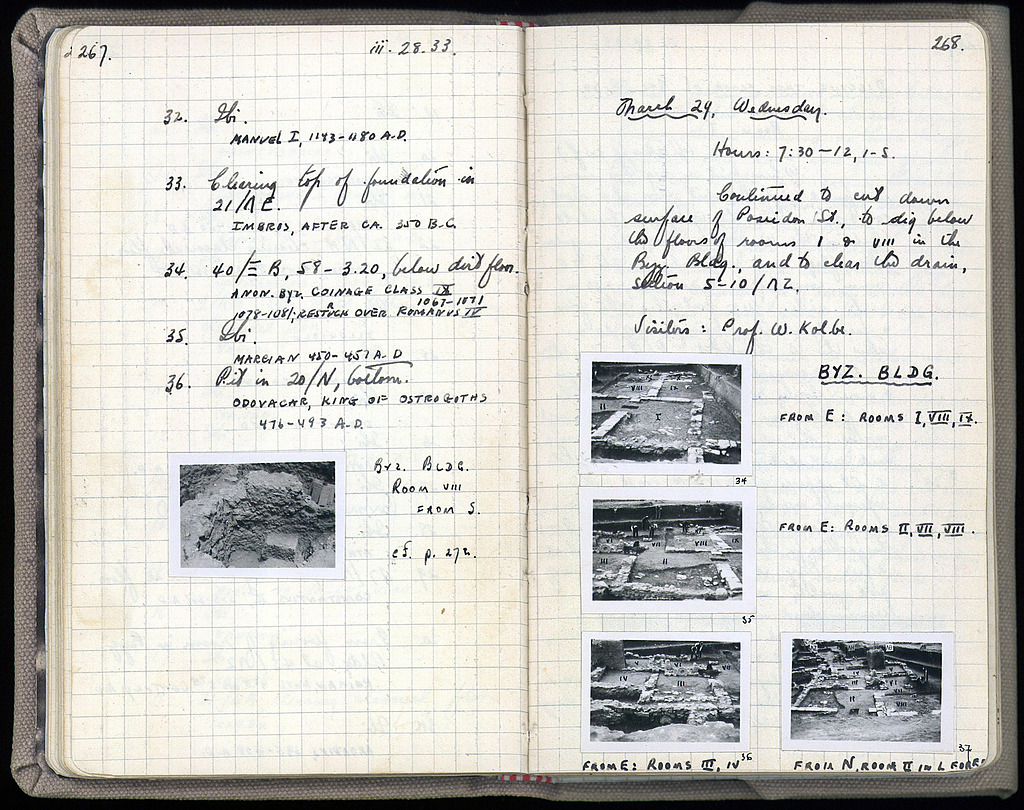 267.
iii. 28. 33.
32. Ibi.
MANUEL I, 1143-1180 A.D.
33. Clearing top of foundation in
21/ΛΕ.
IMBROS, AFTER CA. 350 B.C.
34. 40/Ξ B, 58 - 3.20, below dirt floor.
ANON. BYZ. COINAGE CLASS IX
1067-1071
1078-1081; RESTRUCK OVER ROMANUS IV
35. Ibi.
MARCIAN 450-457 A.D
36. Pit in 20/N, bottom.
ODOVACAR, KING OF OSTROGOTHS
476-493 A.D.
BYZ. BLDG.
ROOM VIII
FROM S.
cf. p. 272.
268.
March 29, Wednesday.
Hours: 7:30-12, 1-5.
Continued to cut down
surface of Poseidon St., to dig below
the floors of rooms I & VIII in the
Byz. Bldg., and to clear the drain,
section 5-10/ΛΖ.
Visitors: Prof. W. Kolbe.
BYZ. BLDG.
VIII IX
II I
FROM E: ROOMS I, VIII, IX.
34
VII IX
III II
FROM E: ROOMS II, VII, VIII.
35
IV III
FROM E: ROOMS III, IV
36
VIII
FROM N, ROOM II IN L FORE
37